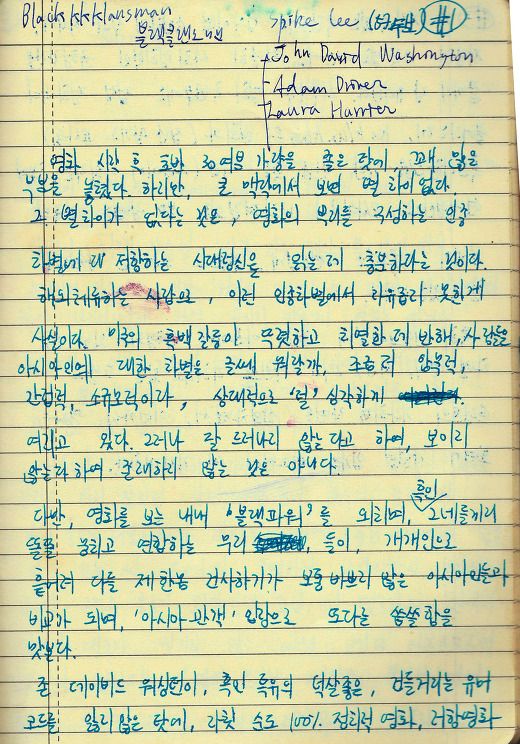 BlackkkKlansman
블랙클랜스맨
Spike Lee (   ) #1
John David Washington
Adam Driver
Laura Harrier
영화 시작 후 초반 30여분 가량을 졸은 탓에 꽤 많은
부분을 놓쳤다. 하지만, 큰 맥락에서 보면 별 차이 없다.
그 별차이가 없다는 것은, 영화의 뿌리를 구성하는 인종
차별에 대 저항하는 시대정신을 읽는데 충분하다는 것이다.
해외체류하는 사람으로, 이런 인종차별에서 자유롭지 못한게
사실이다. 미국의 흑백갈등이 뚜렷하고 치열한데 반해, 사람들은
아시아인에 대한 차별을 글쎄 뭐랄까, 조금 더 암묵적,
간접적, 소규모적이라, 상대적으로 '덜' 심각하게
여기고 왔다. 그러나 잘 드러나지 않는다고 하여, 보이지
않는다하여 존재하지 않는 것은 아니다.
다만, 영화를 보는 내내 '블랙파워'를 외치며, 흑인 그네들끼리
똘똘 뭉치고 연합하는 무리 들이, 개개인으로
흩어져 다들 제 한몸 건사하기가 보통 바쁘지 않은 아시아인들과
비교가 되며, '아시아 관객' 입장으로 또다른 씁쓸함을
맛본다.
존 데이비드 워싱턴이, 흑인 특유의 넉살좋은, 건들거리는 유머
코드를 잃지 않은 탓에, 자칫 순도 100% 정치적 영화, 저항영화